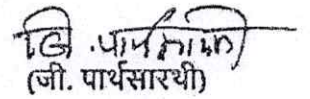 जि. पार्थसारथी
(जी. पार्थसारथी)